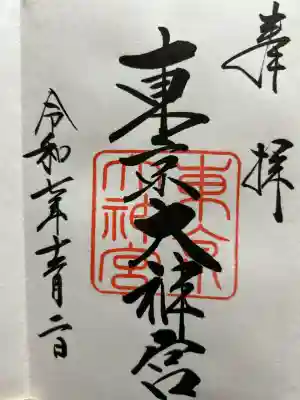 奉拝
東京大神宮
東京大神宮
令和七年十二月二日